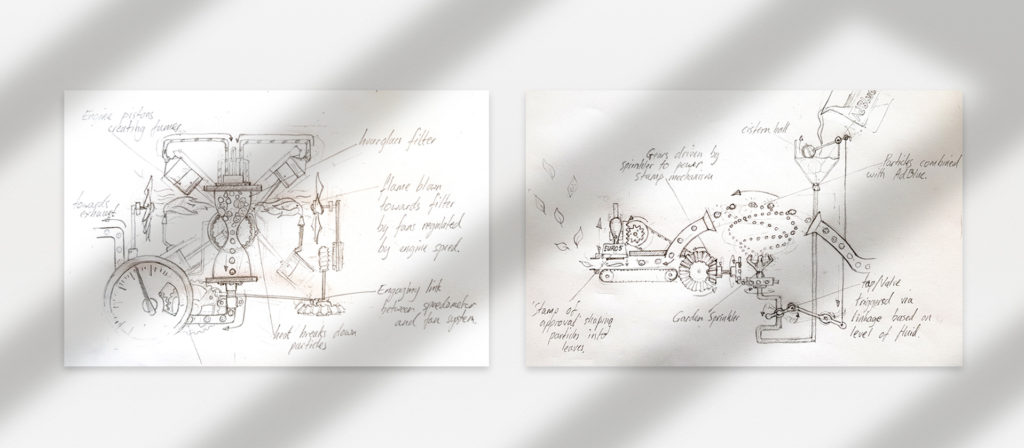 Engine pistons
creating fumes
towards
exhaust
hourglass filter
flame blown
towards filter
by fans regulated
by engine speed.
Engaging link
between speedometer
and fan system.
heat breaks down
particles
AdBlue
cistern ball
Gears driven by
sprinkler to power
stamp mechanism
Particles combined
with AdBlue.
EURO 5
'Stamp of
approval' shaping
particles into
leaves.
Garden Sprinkler
tap/Valve
triggered via
linkage based on
level of fluid.